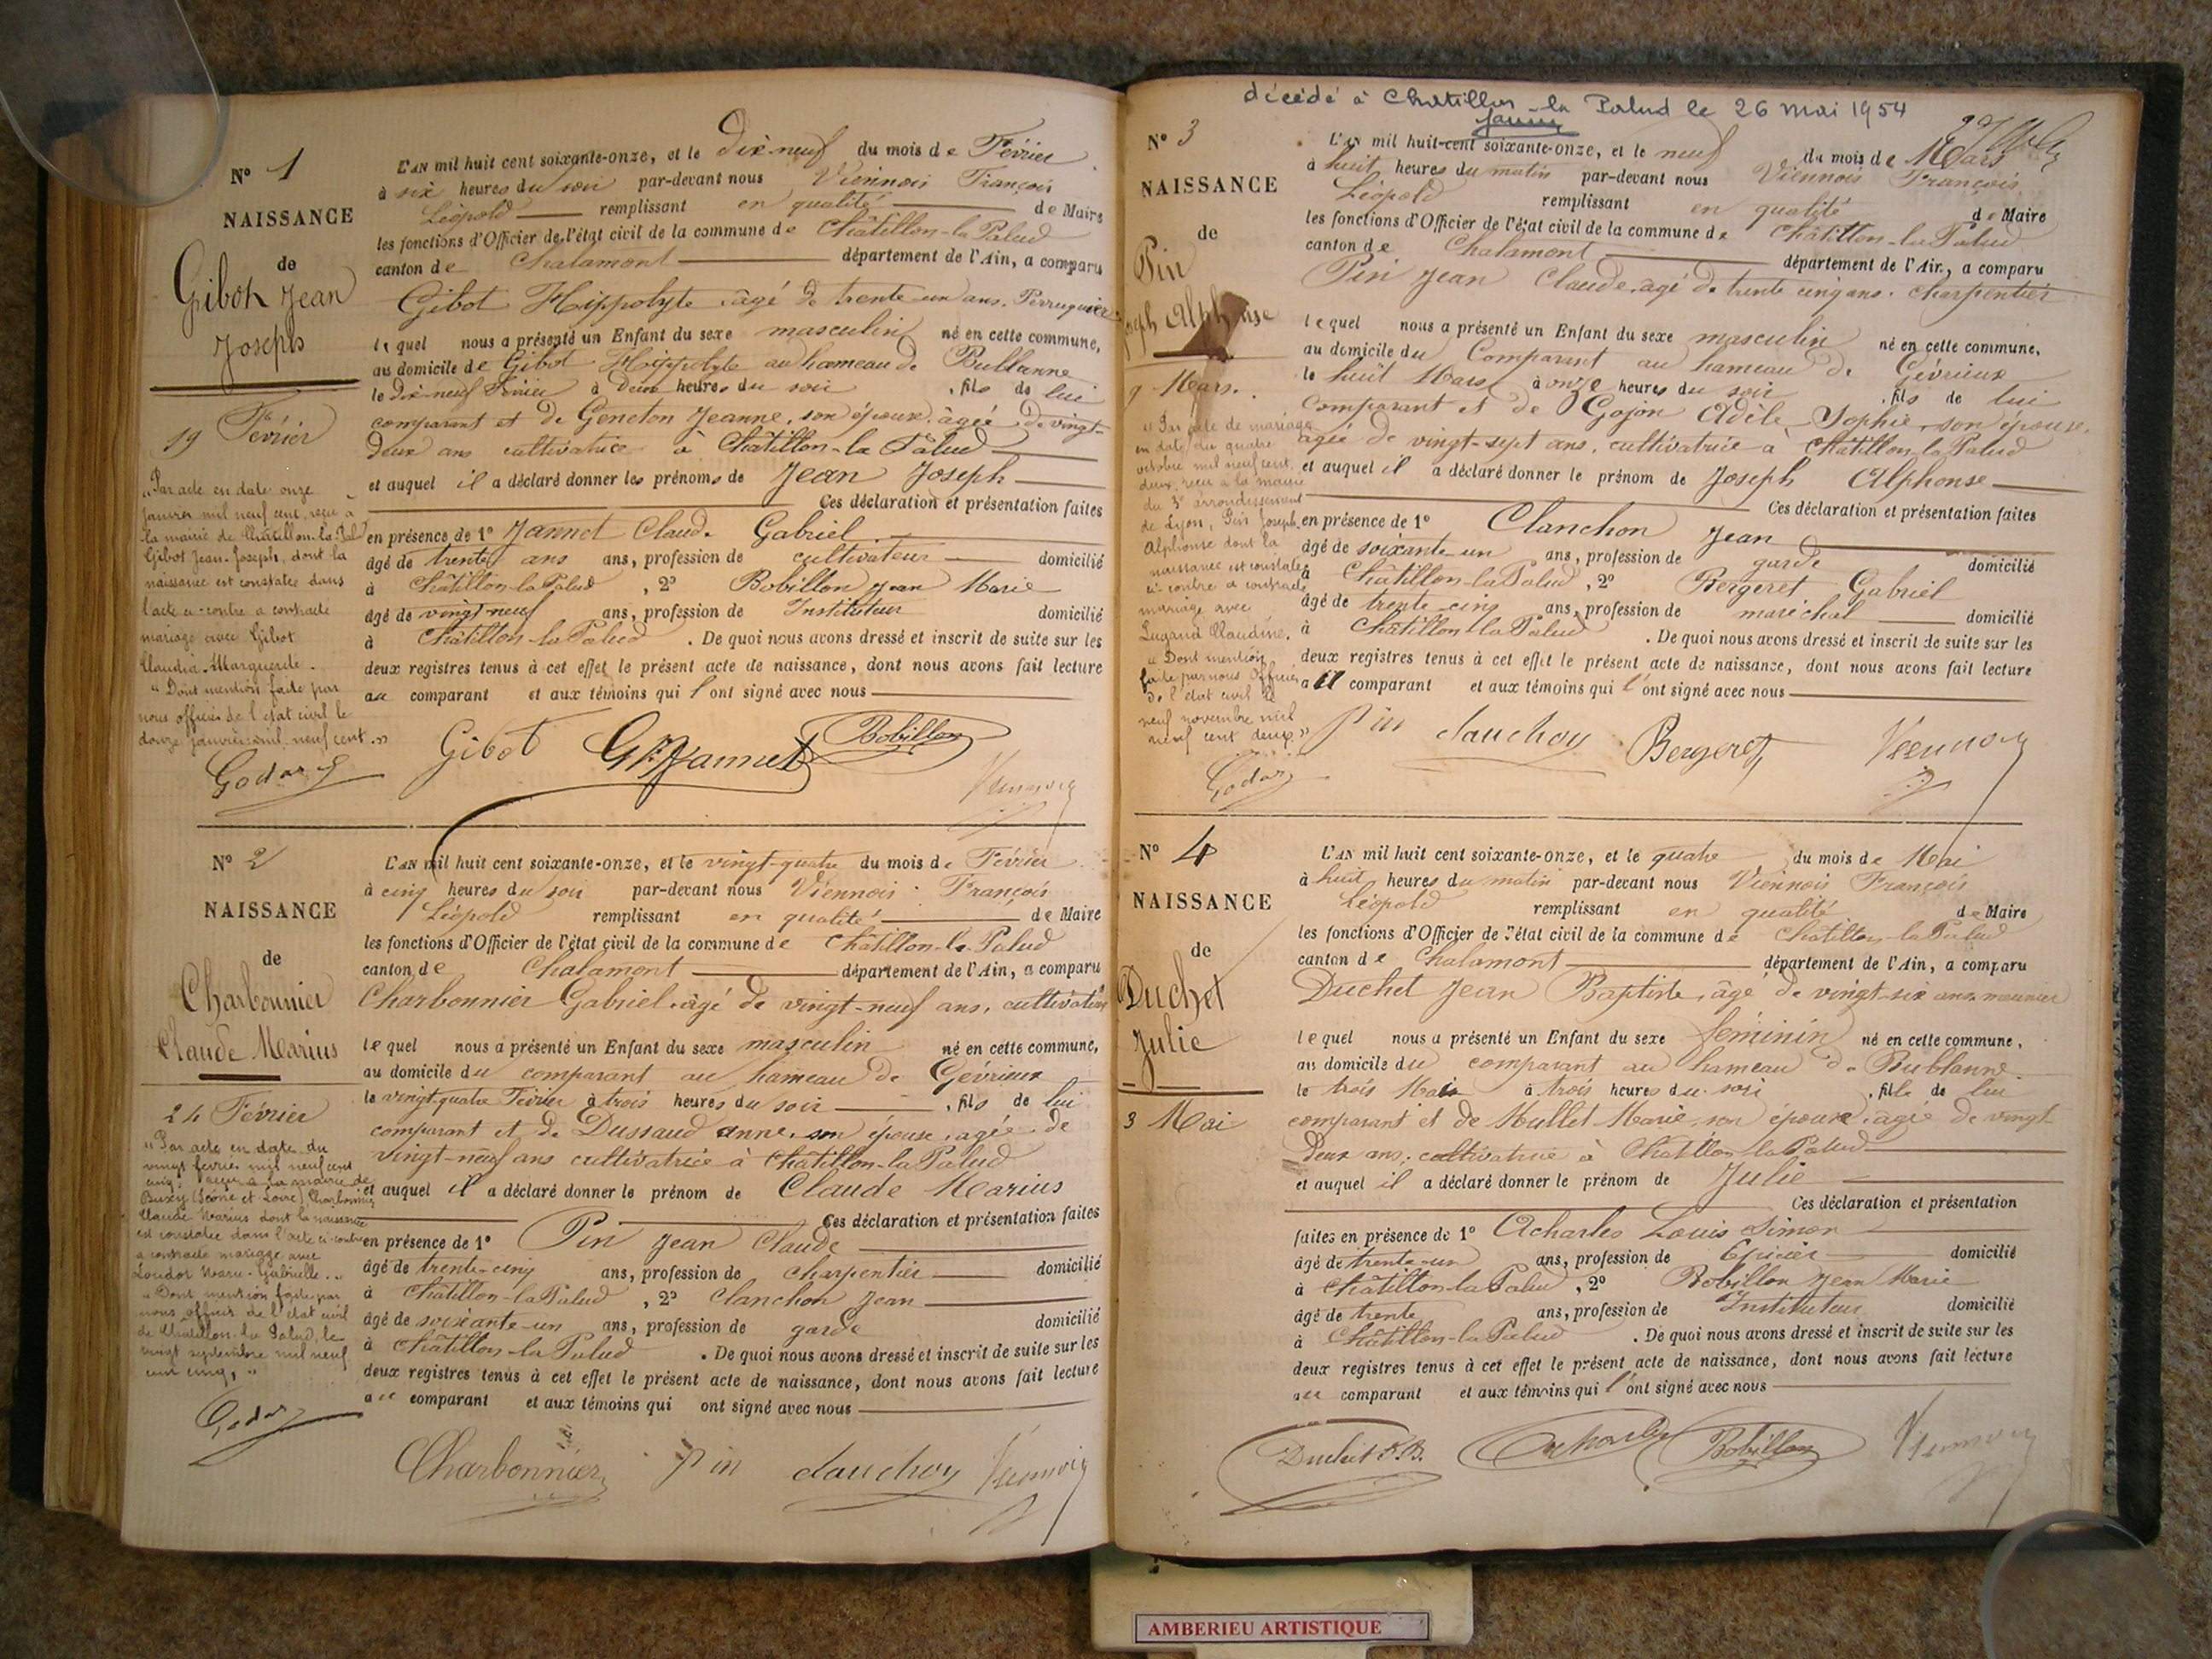 N° 1
NAISSANCE
de
Gibot Jean
Joseph
19 Février
"Par acte en date onze
janvier mil neuf cent, reçu à
la mairie de Châtillon-la-Pal
Gibot Jean-Joseph, dont la
naissance est constatée dans
l'acte ci-contre a contracté
mariage avec Gibot
Claudia-Marguerite.
"Dont mention faite par
nous officier de l'état civil le
douze janvier mil neuf cent."
Godar
L'AN mil huit cent soixante-onze, et le dix-neuf du mois de Février
à six heures du soir par-devant nous Viennois François
Léopold remplissant en qualité de Maire
les fonctions d'Officier de l'état civil de la commune de Châtillon-la-Palud
canton de Chalamont département de l'Ain, a comparu
Gibot Hippolyte, âgé de trente-un ans, Perruquier
lequel nous a présenté un Enfant du sexe masculin né en cette commune,
au domicile de Gibot Hippolyte au hameau de Bublanne
le dix-neuf Février à deux heures du soir, fils de lui
comparant et de Geneton Jeanne, son épouse, âgée de vingt-
deux ans cultivatrice à Châtillon-la-Palud
et auquel il a déclaré donner les prénoms de Jean Joseph
Ces déclaration et présentation faites
en présence de 1° Jannet Claude Gabriel
âgé de trente ans ans, profession de cultivateur domicilié
à Châtillon-la-Palud, 2° Bobillon Jean Marie
âgé de vingt-neuf ans, profession de Instituteur domicilié
à Châtillon-la-Palud. De quoi nous avons dressé et inscrit de suite sur les
deux registres tenus à cet effet le présent acte de naissance, dont nous avons fait lecture
au comparant et aux témoins qui l'ont signé avec nous
Gibot Bobillon
N° 2
NAISSANCE
de
Charbonnier
Claude Marius
24 Février
"Par acte en date du
vingt février mil neuf cent
cinq, reçu à la mairie de
Buxy (Saône et Loire) Charbonnier
Claude Marius dont la naissance
est constatée dans l'acte ci-contre
a contracté mariage avec
Loudot Marie-Gabrielle."
"Dont mention faite par
nous, officier de l'état civil
de Châtillon-la-Palud, le
vingt septembre mil neuf
cent cinq,"
Godar
L'AN mil huit cent soixante-onze, et le vingt-quatre du mois de Février
à cinq heures du soir par-devant nous Viennois François
Léopold remplissant en qualité de Maire
les fonctions d'Officier de l'état civil de la commune de Châtillon-la-Palud
canton de Chalamont département de l'Ain, a comparu
Charbonnier Gabriel, âgé de vingt-neuf ans, cultivateur
lequel nous a présenté un Enfant du sexe masculin né en cette commune,
au domicile du comparant au hameau de Gévrieux
le vingt-quatre Février à trois heures du soir, fils de lui
comparant et de Dussaud Anne, son épouse, âgée de
vingt-neuf ans cultivatrice à Châtillon-la-Palud
et auquel il a déclaré donner le prénom de Claude Marius
Ces déclaration et présentation faites
en présence de 1° Pin Jean Claude
âgé de trente-cinq ans, profession de charpentier domicilié
à Châtillon-la-Palud, 2° Clanchon Jean
âgé de soixante-un ans, profession de garde domicilié
à Châtillon-la-Palud. De quoi nous avons dressé et inscrit de suite sur les
deux registres tenus à cet effet le présent acte de naissance, dont nous avons fait lecture
au comparant et aux témoins qui ont signé avec nous
Charbonnier Pin
décédé à Chatillon-la Palud le 26 mai 1954
N° 3
NAISSANCE
de
Pin
Joseph Alphonse
9 Mars.
"Par acte de mariage
en date du quatre
octobre mil neuf cent
deux, reçu à la mairie
du 3e arrondissement
de Lyon, Pin Joseph
Alphonse dont la
naissance est constatée
ci-contre a contracté
mariage avec
Lugand Claudine.
"Dont mention
faite par nous Officier
de l'état civil le
neuf novembre mil
neuf cent deux"
Godar
L'AN mil huit-cent soixante-onze, et le neuf du mois de Mars
à huit heures du matin par-devant nous Viennois François
Léopold remplissant en qualité de Maire
les fonctions d'Officier de l'état civil de la commune de Châtillon-la-Palud
canton de Chalamont département de l'Ain, a comparu
Pin Jean Claude, âgé de trente cinq ans, charpentier
lequel nous a présenté un Enfant du sexe masculin né en cette commune,
au domicile du Comparant au hameau de Gévrieux
le huit Mars à onze heures du soir, fils de lui
comparant et de Gojon Adèle Sophie, son épouse,
âgée de vingt-sept ans, cultivatrice à Châtillon-la-Palud
et auquel il a déclaré donner le prénom de Joseph Alphonse
Ces déclaration et présentation faites
en présence de 1° Clanchon Jean
âgé de soixante-un ans, profession de garde domicilié
à Châtillon-la-Palud, 2° Bergeret Gabriel
âgé de trente-cinq ans, profession de maréchal domicilié
à Châtillon-la-Palud. De quoi nous avons dressé et inscrit de suite sur les
deux registres tenus à cet effet le présent acte de naissance, dont nous avons fait lecture
au comparant et aux témoins qui l'ont signé avec nous
Pin Bergeret
N° 4
NAISSANCE
de
Duchet
Julie
3 Mai
L'AN mil huit cent soixante-onze, et le quatre du mois de Mai
à huit heures du matin par-devant nous Viennois François
Léopold remplissant en qualité de Maire
les fonctions d'Officier de l'état civil de la commune de Châtillon-la-Palud
canton de Chalamont département de l'Ain, a comparu
Duchet Jean Baptiste, âgé de vingt-six ans, meunier
lequel nous a présenté un Enfant du sexe féminin né en cette commune,
au domicile du comparant au hameau de Bublanne
le trois Mai à trois heures du soir, fille de lui
comparant et de Mullet Marie, son épouse, âgée de vingt-
deux ans, cultivatrice à Châtillon-la-Palud
et auquel il a déclaré donner le prénom de Julie
Ces déclaration et présentation
faites en présence de 1° Acharles Louis Simon
âgé de trente-un ans, profession de Epicier domicilié
à Châtillon-la-Palud, 2° Bobillon Jean Marie
âgé de trente ans, profession de Instituteur domicilié
à Châtillon-la-Palud. De quoi nous avons dressé et inscrit de suite sur les
deux registres tenus à cet effet le présent acte de naissance, dont nous avons fait lecture
au comparant et aux témoins qui l'ont signé avec nous
Duchet J.B. Bobillon
AMBERIEU ARTISTIQUE